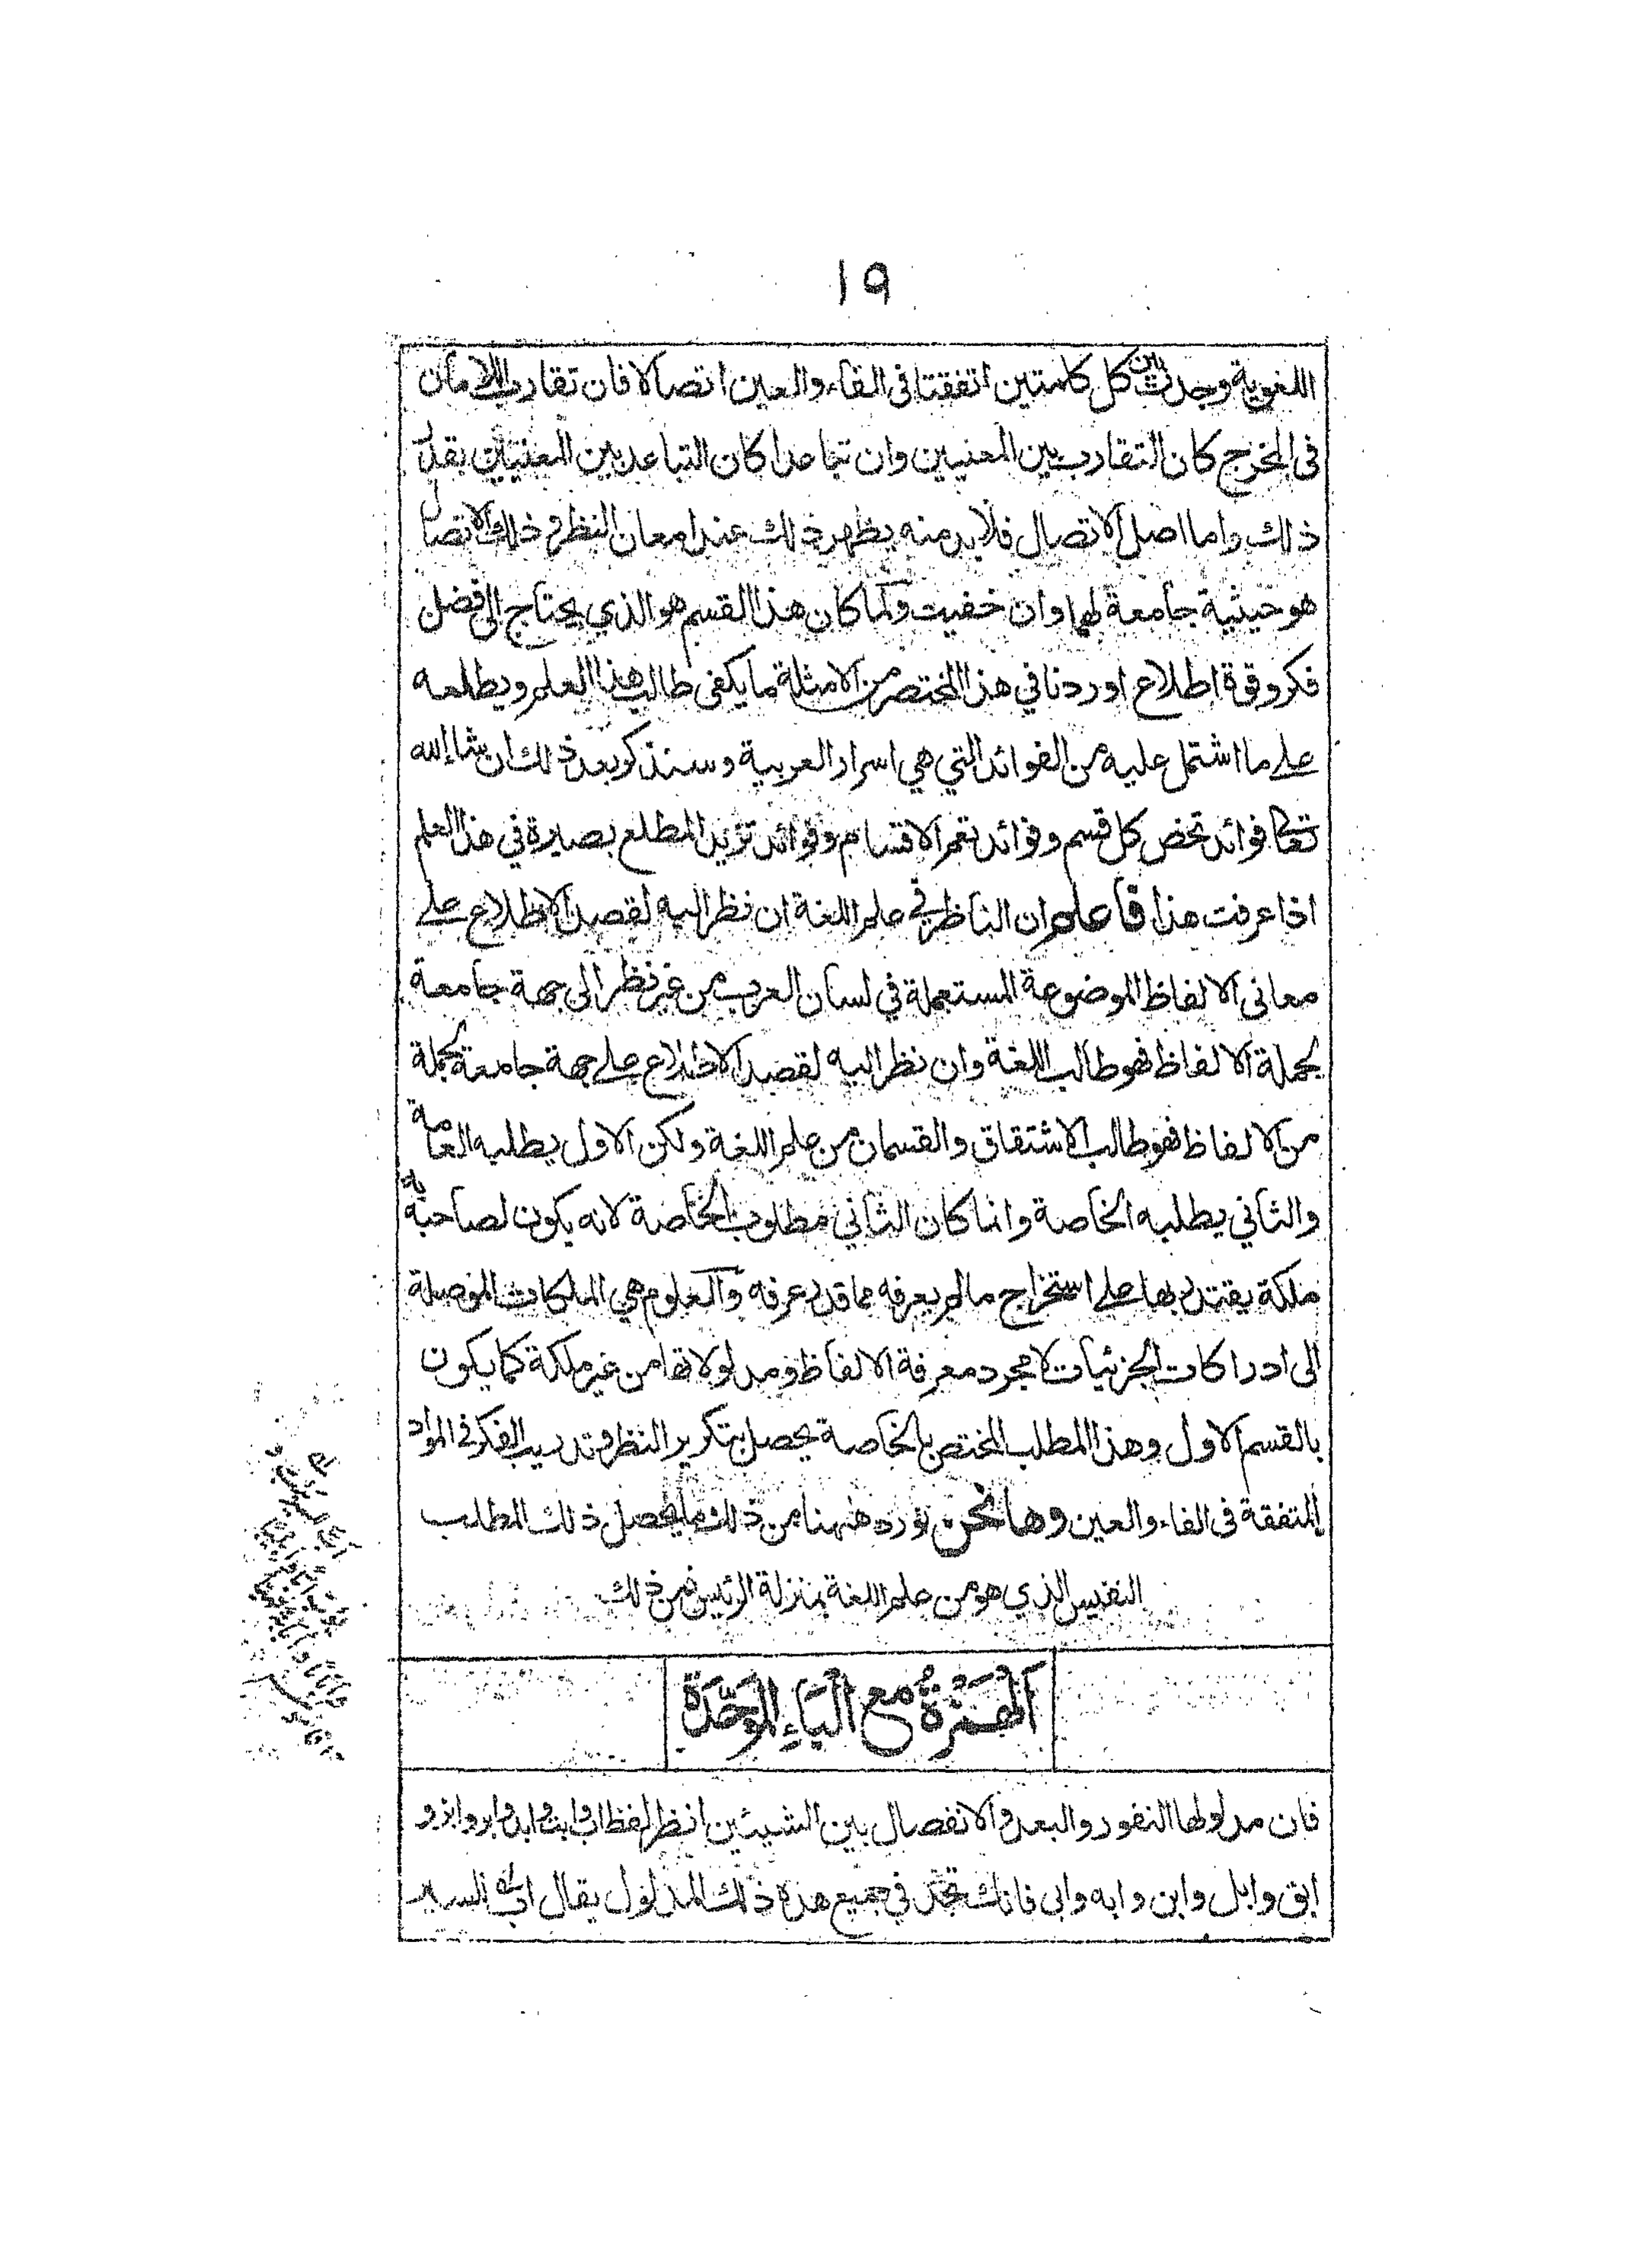 ١٩
اللغوية وجدت بين كل كلمتين اتفقتا في الفاء والعين اتصالا فان تقارب اللامان
في المخرج كان التقارب بين المعنيين وان تباعدا كان التباعد بين المعنيين بقدر
ذلك واما اصل الاتصال فلا بد منه يظهر ذلك عند امعان النظر و ذلك الاتصال
هو حيثية جامعة لهما وان خفيت ولما كان هذا القسم هو الذي يحتاج الى فضل
فكر وقوة اطلاع اوردنا في هذا المختصر من الامثلة ما يكفى طالب هذا العلم ويطلعه
على ما اشتمل عليه من الفوائد التي هي اسرار العربية وسنذكر بعد ذلك ان شاء الله
تعالى فوائد تخص كل قسم وفوائد تعم الاقسام وفوائد تزيد المطلع بصيرة في هذا العلم
اذا عرفت هذا فاعلم ان الناظر في علم اللغة ان نظر اليه لقصد الاطلاع على
معانى الالفاظ الموضوعة المستعملة في لسان العرب من غير نظر الى جهة جامعة
لجملة الالفاظ فهو طالب اللغة وان نظر اليه لقصد الاطلاع على جهة جامعة لجملة
من الالفاظ فهو طالب الاشتقاق والقسمان من علم اللغة ولكن الاول يطلبه العامة
والثاني يطلبه الخاصة وانما كان الثاني مطلوب الخاصة لانه يكون لصاحبه به
ملكة يقتدر بها على استخراج ما لم يعرفه مما قد عرفه والعلوم هي الملكات الموصلة
الى ادراكات الجزئيات لا مجرد معرفة الالفاظ ومدلولاتها من غير ملكة كما يكون
بالقسم الاول وهذا المطلب المختص بالخاصة يحصل بتكرير النظر وتدريب الفكر في المواد
المتفقة فى الفاء والعين وها نحن نورد ههنا من ذلك ما يحصل ذلك المطلب
النفيس الذي هو من علم اللغة بمنزلة الرئيس فمن ذلك
اَلْهَمْزَةُ مَع الْبَاءِ الْمُوَحَّدَةِ
فان مدلولها النفور والبعد والانفصال بين الشيئين انظر لفظ اب وابت وابد وابر وابز و
ابق وابل وابن وابه وابى فانك تجد في جميع هذه ذلك المدلول يقال اب السير